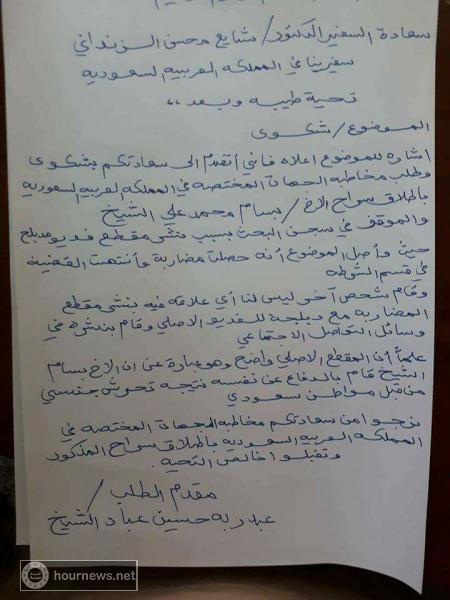 سعادة السفير الدكتور/ شايع محسن الزنداني
سفيرنا في المملكه العربيه السعوديه
تحية طيبه وبعد،،
الموضوع/ شكوى
اشاره للموضوع اعلاه فانني أتقدم الى سعادتكم بشكوى
وطلب مخاطبه الجهات المختصه في المملكه العربيه السعوديه
بإطلاق سراح الاخ/ بسام محمد علي الشيخ
والموقف في سجن البحث بسبب نشر مقطع فديو مدبلج
حيث وأصل الموضوع أنه حصلت مضاربة وأنتهت القضية
في قسم الشرطه
وقام شخص آخر ليس لنا أي علاقه فيه بنشر مقطع
المضاربه مع دبلجة للفديو الاصلي وقام بنشره في
وسائل التواصل الاجتماعي
علماً أن المقطع الاصلي واضح وهو عبارة عن ان الاخ بسام
الشيخ قام بالدفاع عن نفسه نتيجه تحرش جنسي
من قبل مواطن سعودي
نرجوا من سعادتكم مخاطبه الجهات المختصه في
المملكه العربيه السعوديه بإطلاق سراح المذكور
وتقبلو اخالص التحيه.
مقدم الطلب/
عبدربه حسين عباد الشيخ
hournews.net